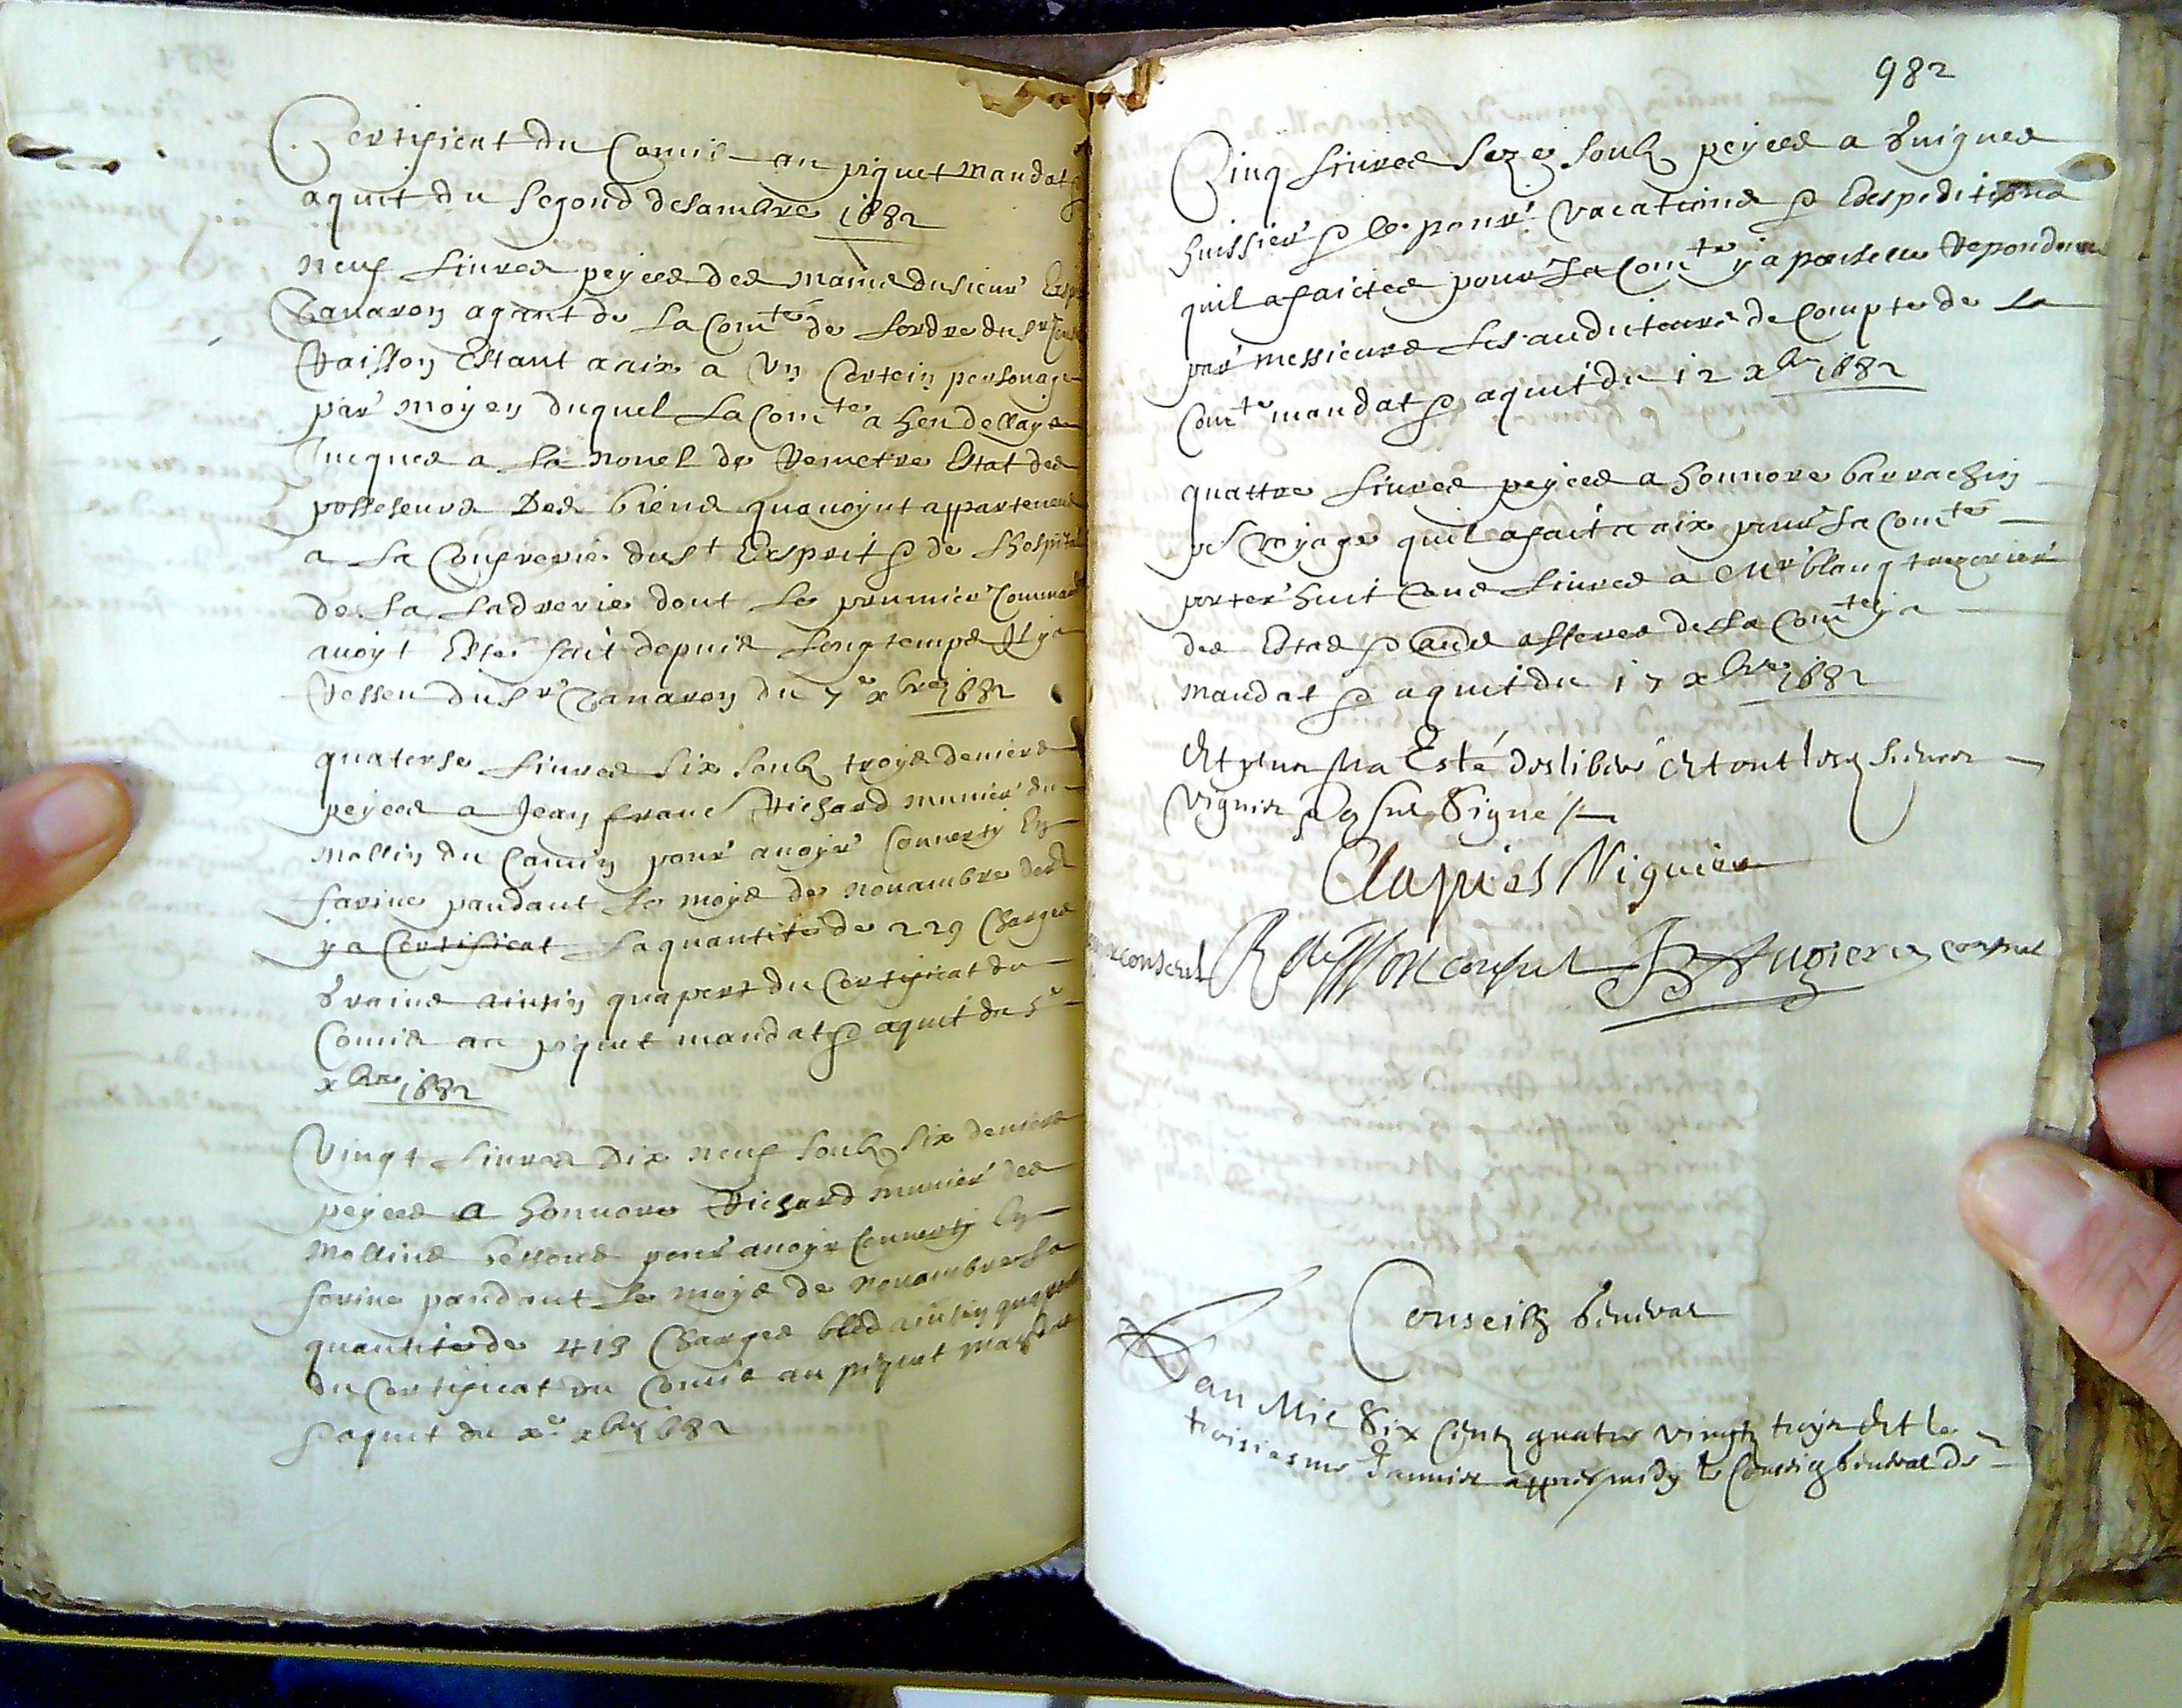 Certificat du Comis au piquet mandat &
aquit du segond desambre 1682
neuf livres peyees des mains du sieur
Tavaron agant de la Comte de lordre du sr
Raisson Estant a aix a Un Certein personage
par moyen duquel la Comte a heu dellay
Jucques a la nouel de Remetre Estat des
possesseurs Des biens quavoynt appartenent
a la Confrerie du st Esprit & de lhospital
de la ladrerie dont le prumier Command
avoyt Este fait depuis longtemps Il ya
Resseu du sr Tavaron du 7e xbre 1682
quatorse livres six soulz troys deniers
peyees a Jean franc Richard munier du
mollin du Camin pour avoyr Converty En
farine pandant le moys de novambre der
y a Certificat la quantite de 229 Charges
graine ainsin quapert du Certificat du
Comis au piquet mandat & aquit du 5e
xbre 1682
Vingt livres Dix neuf soulz six deniers
peyees a honnore Richard munier des
mollins pour avoyr Converty En
farine pandant le moys de novambre la
quantite de 413 Charges bled ainsin quapert
du Certificat du Comis au piquet mandat
& aquit du xe xbre 1682
982
Cinq livres seze soulz peyees a
huissier & ce pour Vacations & Expeditions
quil a faictes pour la Comte y a Repondeue
par messieurs les auditeurs de Compte de la
Comte mandat & aquit du 12 xbre 1682
quattre livres peyees a honnore barrachin
voyage quil a fait a aix pour la Comte
porter huit Cens livres a Mr blanq tresorier
des Estas & de la Comte y a
mandat & aquit du 17 xbre 1682
Et plus na Esté deslibéré Et ont lesd sieurs
Viguier & Signé
Clapiés Viguier
consul Raisson consul consul
Conseilh General
Lan Mil Six Centz quatre vingtz troys Et le
troisiesme Janvier appres midy le Conseilh General de